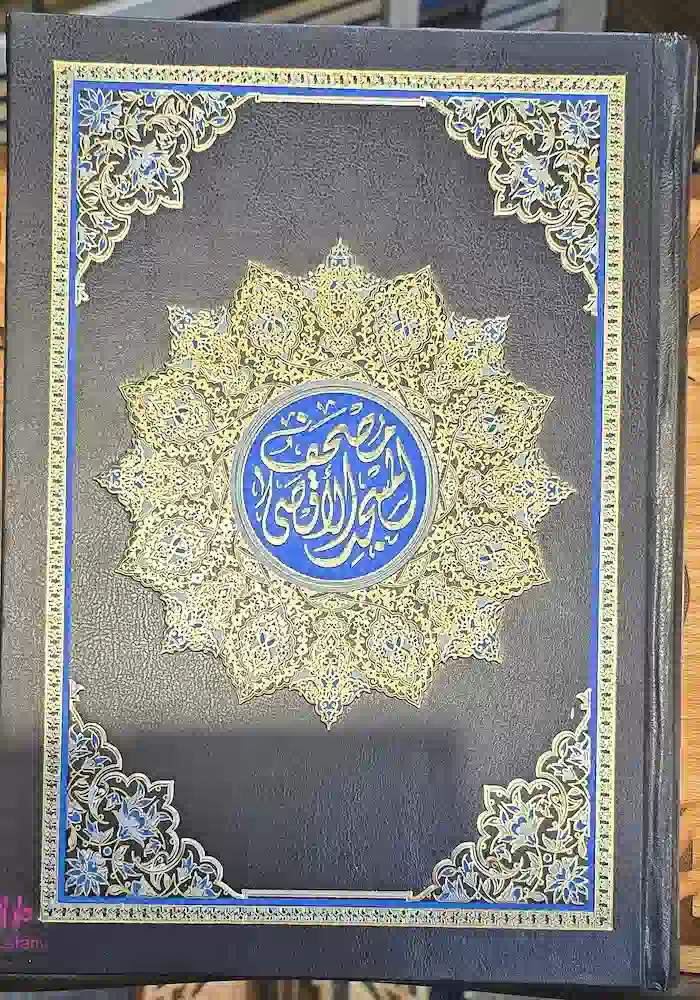 مصحف
المسجد الأقصى